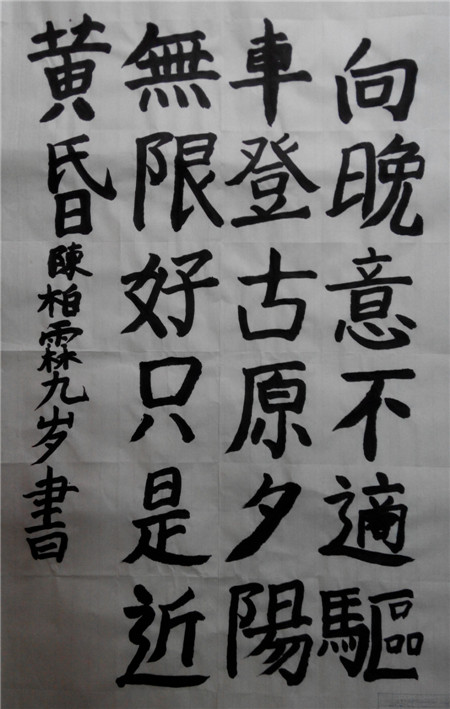 向晚意不適驅
車登古原夕陽
無限好只是近
黄昏陳柏霖九岁書